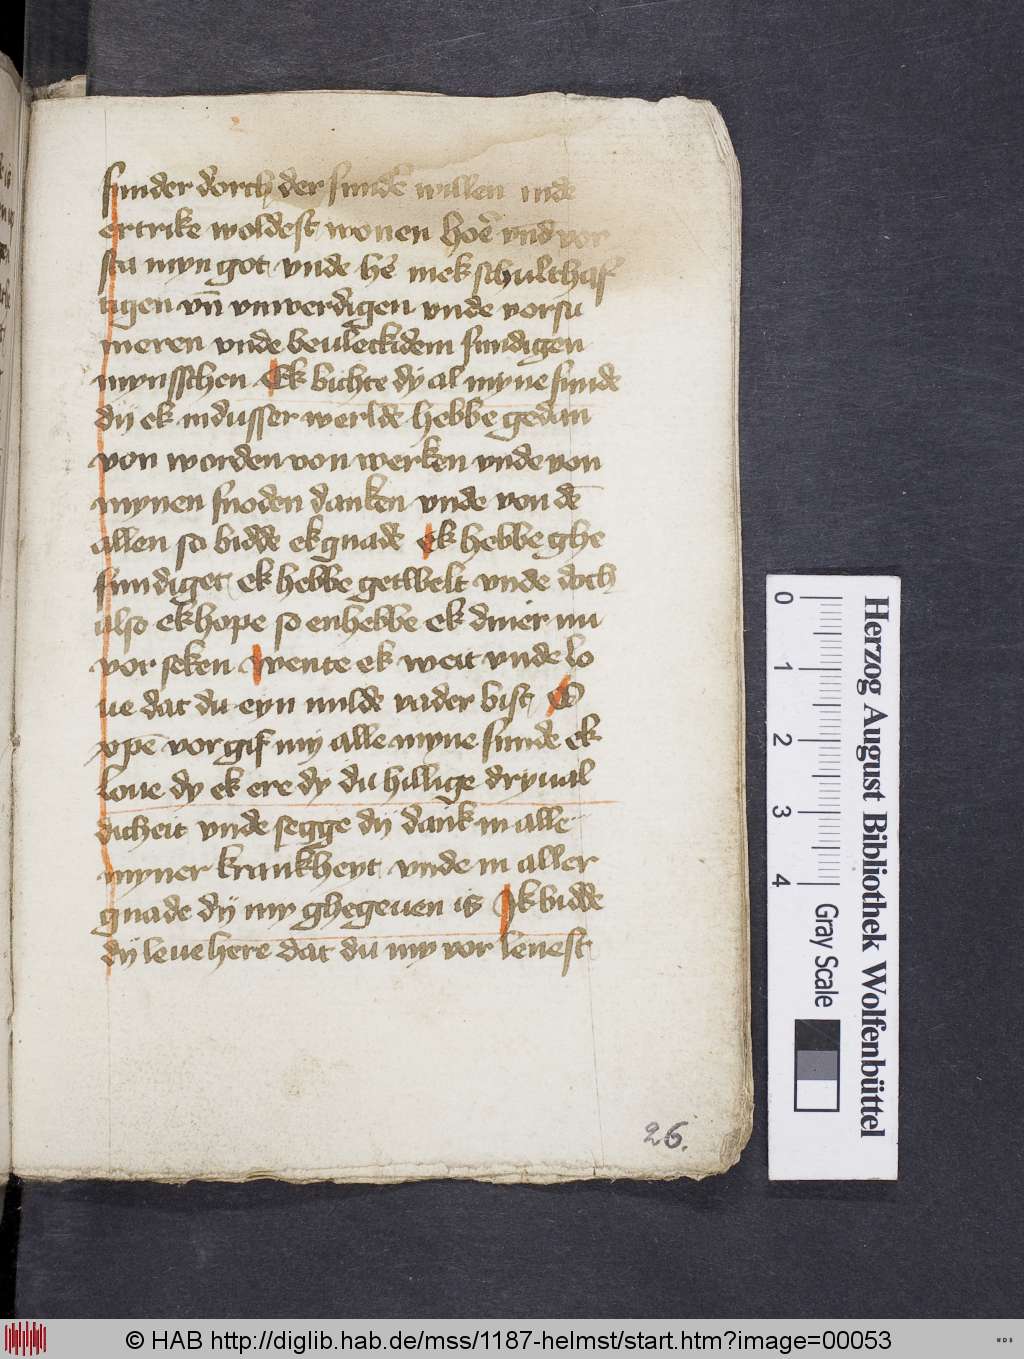 sunder dorch der sund' willen in de
ertrike woldest wonen hoe͛ vnd vor
sta myn got vnde he͛ mek schulthaf
tigen vn̄ vnwerdigen vnde vorsu
meren vnde beuleckidem sundigen
mynsschen Ek bichte dÿ al myne sunde
dÿ ek in dusser werlde hebbe gedan
von worden von werken vnde von
mynen snoden danken vnde von dē
allen so bidde ek gnade ek hebbe ghe
sundiget ek hebbe getwelt vnde doch
also ek hope so en hebbe ek diner nu
vor seken wente ek weit vnde lo
ue dat du eyn milde vader bist O
xpē vor gif mÿ alle myne sunde ek
loue dy ek ere dy du hillige dryual
dicheit vnde segge dÿ dank in alle
myner krankheyt vnde in aller
gnade dÿ my ghegeuen is Ik bidde
dÿ leue here dat du my vor lenest
26.
0 1 2 3 4
Gray Scale
Herzog August Bibliothek Wolfenbüttel
© HAB http://diglib.hab.de/mss/1187-helmst/start.htm?image=00053